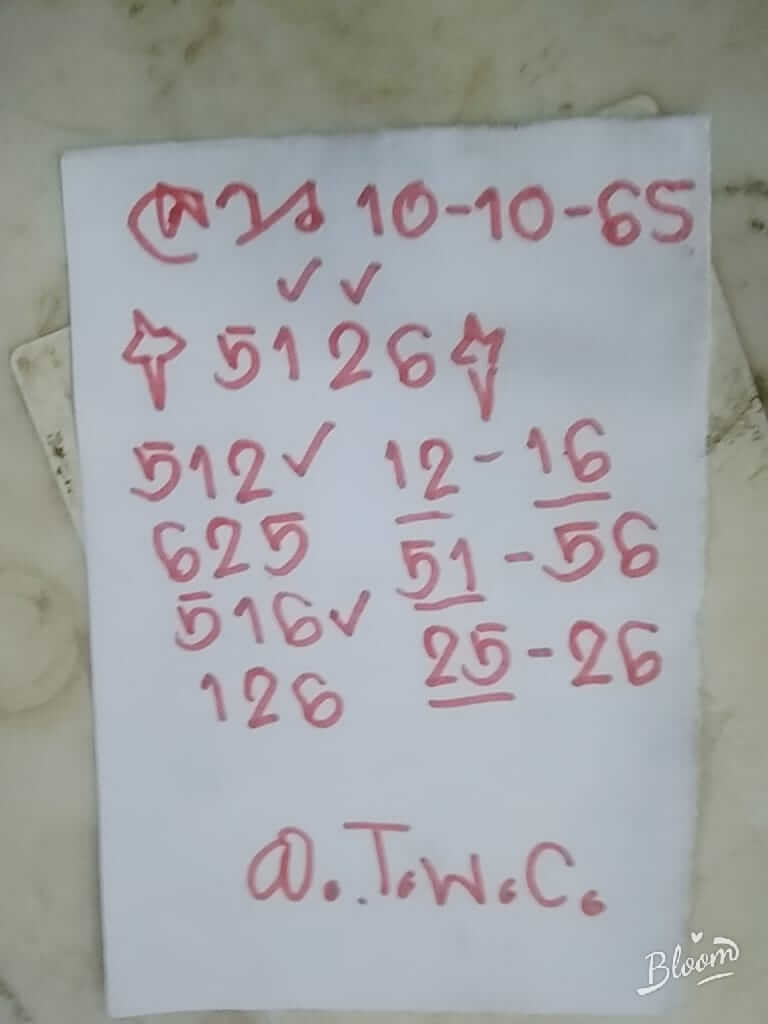 10-10-65
5126
512 12-16
625 51-56
516 25-26
126
อ.T.w.C.
Bloom